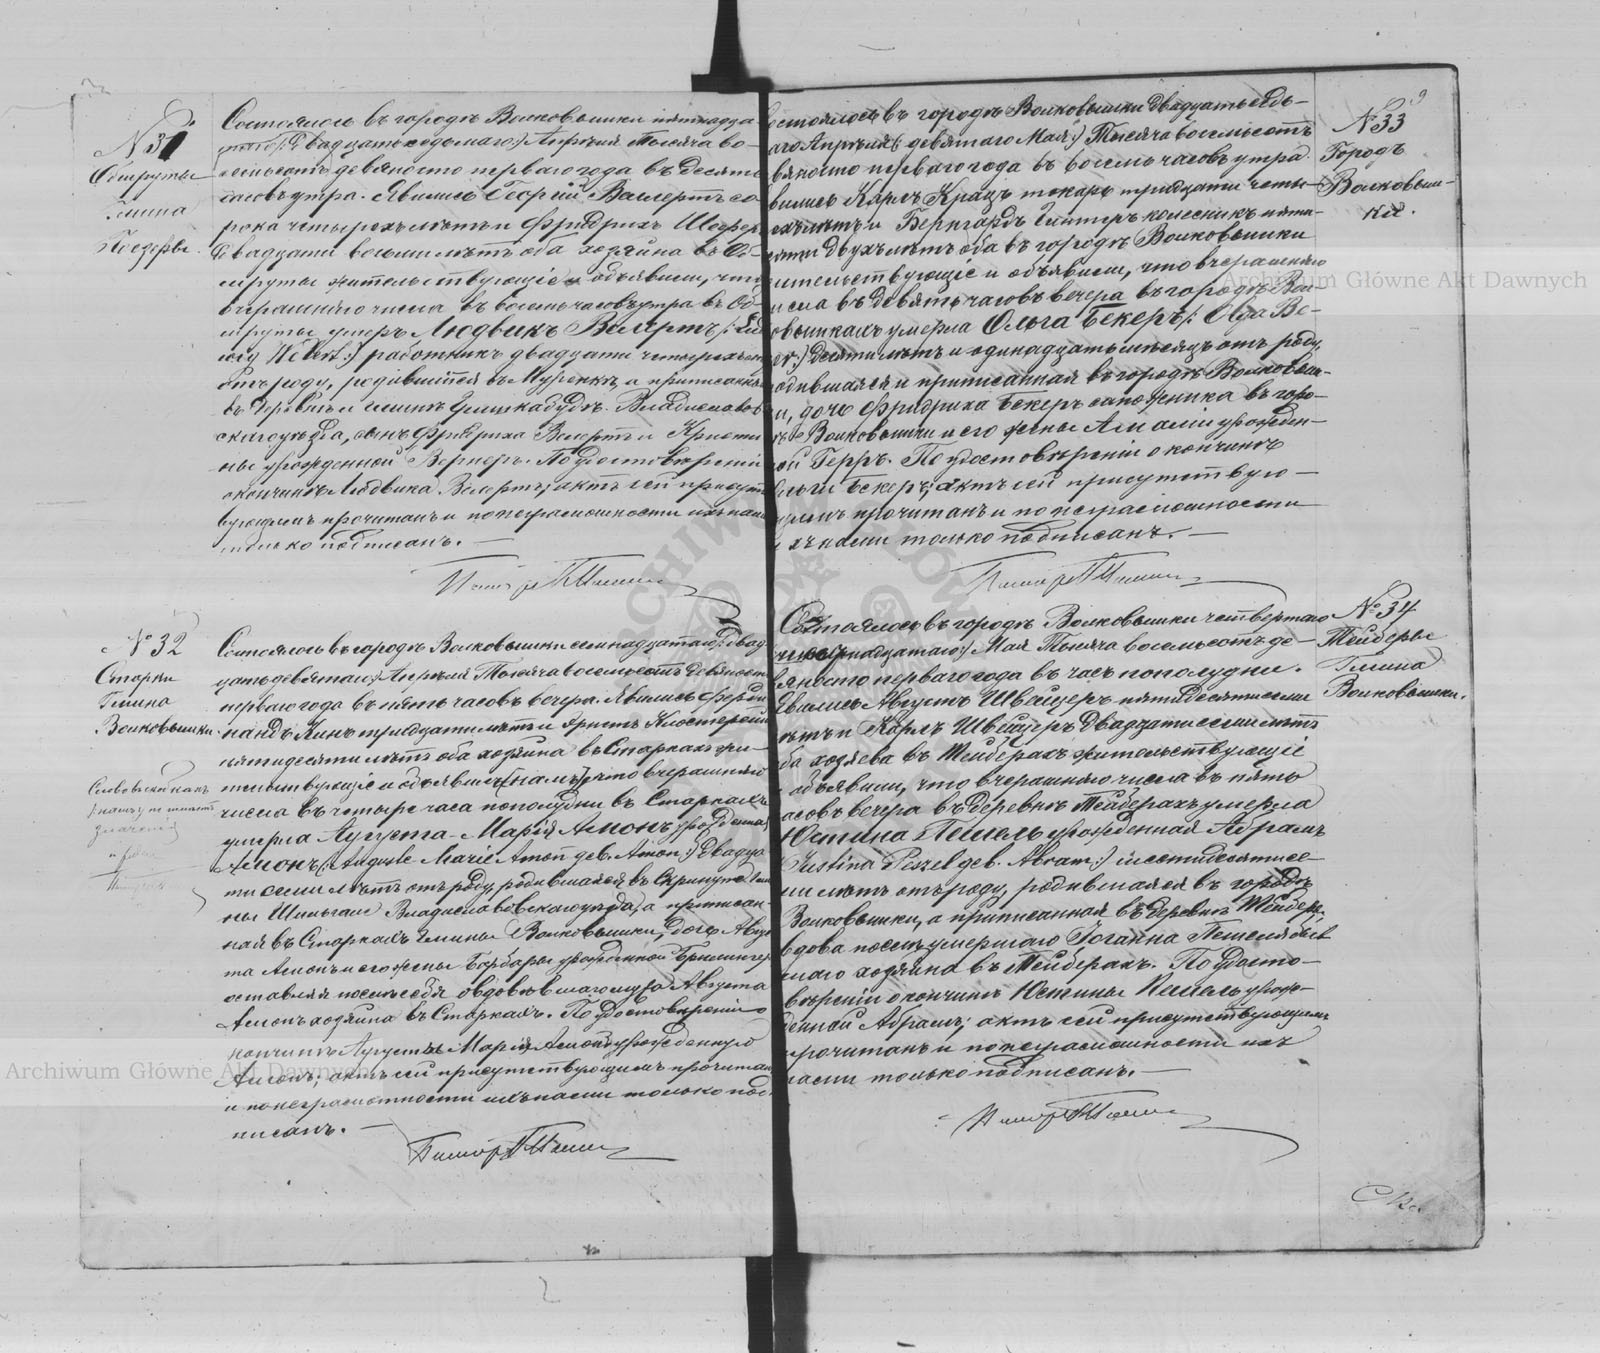 № 31
Обшруты
Гмина
Состоялось въ городѣ Волковышки пятнадца-
(Двадцать седьмаго) Апрѣля Тысяча во-
семьсотъ девяносто перваго года въ десять
часовъ утра. Явились Георгій Велертъ со-
рока четырехъ лѣтъ и Фридрихъ Шефер
двадцати восьми лѣтъ оба хозяйна въ Об-
шруты жительствующіе и объявили, что
вчерашняго числа въ восемь часовъ утра въ Об-
шруты умеръ Людвикъ Велертъ /: Lud
wig Welert :/ работникъ двадцати четырехъ лѣтъ
отъ роду, родившійся въ и приписанный
въ деревнѣ и гминѣ Владиславов
скаго уѣзда, сынъ Фридриха Велертъ и Кристи
ны урожденной Вернеръ. По удостовѣреніи
о кончинѣ Людвика Велертъ, актъ сей присут
вующимъ прочитанъ и по неграмотности ихъ нами
только подписанъ. —
№ 32
Старки
Гмина
Волковышки
Состоялось въ городѣ Волковышки семнадцатаго (двад
цать девятаго) Апрѣля Тысяча восемьсотъ девяносто
перваго года въ пять часовъ вечера. Явились Ферди
нандъ Кинъ тридцати лѣтъ и Эрнстъ
пятидесяти лѣтъ оба хозяйна въ Старкахъ жи-
тельствующіе и объявили (намъ) что вчерашняго
числа въ четыре часа пополудни въ Старкахъ
умерла Августа-Марія Амонъ урожденная
Амонъ (: Auguste Marie Amon geb. Amon :) двадца
ти семи лѣтъ отъ роду, родившаяся въ Гми
ны Владиславовскаго уѣзда, а приписан-
ная въ Старкахъ гмины Волковышки, дочь Авгус
та Амонъ и его жены Барбары урожденной
оставляя послѣ себя овдовѣвшаго мужа Августа
Амонъ хозяина въ Старкахъ. По удостовѣреніи о
кончинѣ Августы Маріи Амонъ урожденную
Амонъ, актъ сей присутствующимъ прочитан
и по неграмотности ихъ нами только под-
писанъ. —
№ 33
Городъ
Волковыш-
ки.
остоялось въ городѣ Волковышки двадцать седь-
аго Апрѣля (девятаго Мая:) Тысяча восемьсотъ
вяносто перваго года въ восемь часовъ утра.
вились Карлъ Крацъ токарь тридцати четы-
ехъ лѣтъ и Бернгардъ Гинтеръ колесникъ пяти-
сяти двухъ лѣтъ оба въ городѣ Волковышки
ительствующіе и объявили, что вчерашняго
исла въ девять часовъ вечера въ городѣ Вол-
овышкахъ умерла Ольга Бекеръ /: Olga Be-
er :/ десяти лѣтъ и одинадцать мѣсяцъ отъ роду,
одившаяся и приписанная въ городѣ Волковыш-
и, дочь Фридриха Бекеръ сапожника въ горо-
ѣ Волковышки и его жены Амаліи урожден-
ой Герръ. По удостовѣреніи о кончинѣ
льги Бекеръ, актъ сей присутствую-
щимъ прочитанъ и по неграмотности
ихъ нами только подписанъ. —
№ 34
Тейберы
Гмина
Волковышки.
Состоялось въ городѣ Волковышки четвертаго
надцатаго) Мая Тысяча восемьсотъ де-
вяносто перваго года въ часъ пополудни.
Явились Августъ Швайцеръ пятидесяти семи
лѣтъ и Карлъ Швейцеръ двадцати семи лѣтъ
ба хозяева въ Тейберахъ жительствующіе
объявили, что вчерашняго числа въ пять
асовъ вечера въ деревнѣ Тейберахъ умерла
Юстина Пешель урожденная Абрамъ
Justina Peszel geb. Abram :/ шестидесяти се-
ми лѣтъ отъ роду, родившаяся въ городѣ
Волковышки, а приписанная въ деревнѣ Тейбер
вдова послѣ умершаго Іоганна Пешель быв
шаго хозяина въ Тейберахъ. По удосто-
вѣреніи о кончинѣ Юстины Пешель урож-
денной Абрамъ, актъ сей присутствующимъ
прочитанъ и по неграмотности ихъ
нами только подписанъ. —
Archiwum Główne Akt Dawnych
Archiwum Główne Akt Dawnych